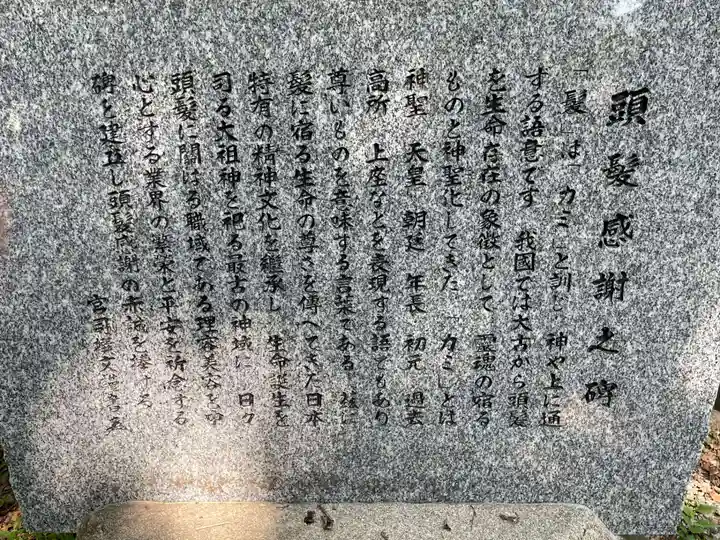 頭髪感謝之碑
「髪」は「カミ」と訓じ 神や上に通
する語意です 我國では太古から頭髪
を生命存在の象徴として 霊魂の宿る
ものと神聖化してきた 「カミ」とは
神聖 天皇 朝廷 年長 初元 過去
高所 上座などを表現する語でもあり
尊いものを意味する言葉である 故に
髪に宿る生命の尊さを傳へてきた日本
特有の精神文化を継承し 生命誕生を
司る大祖神を祀る最古の神域に 日々
頭髪に關はる職域である理容美容を中
心とする業界の繁栄と平安を祈念する
碑を建立し頭髪感謝の赤誠を捧げる
宮司